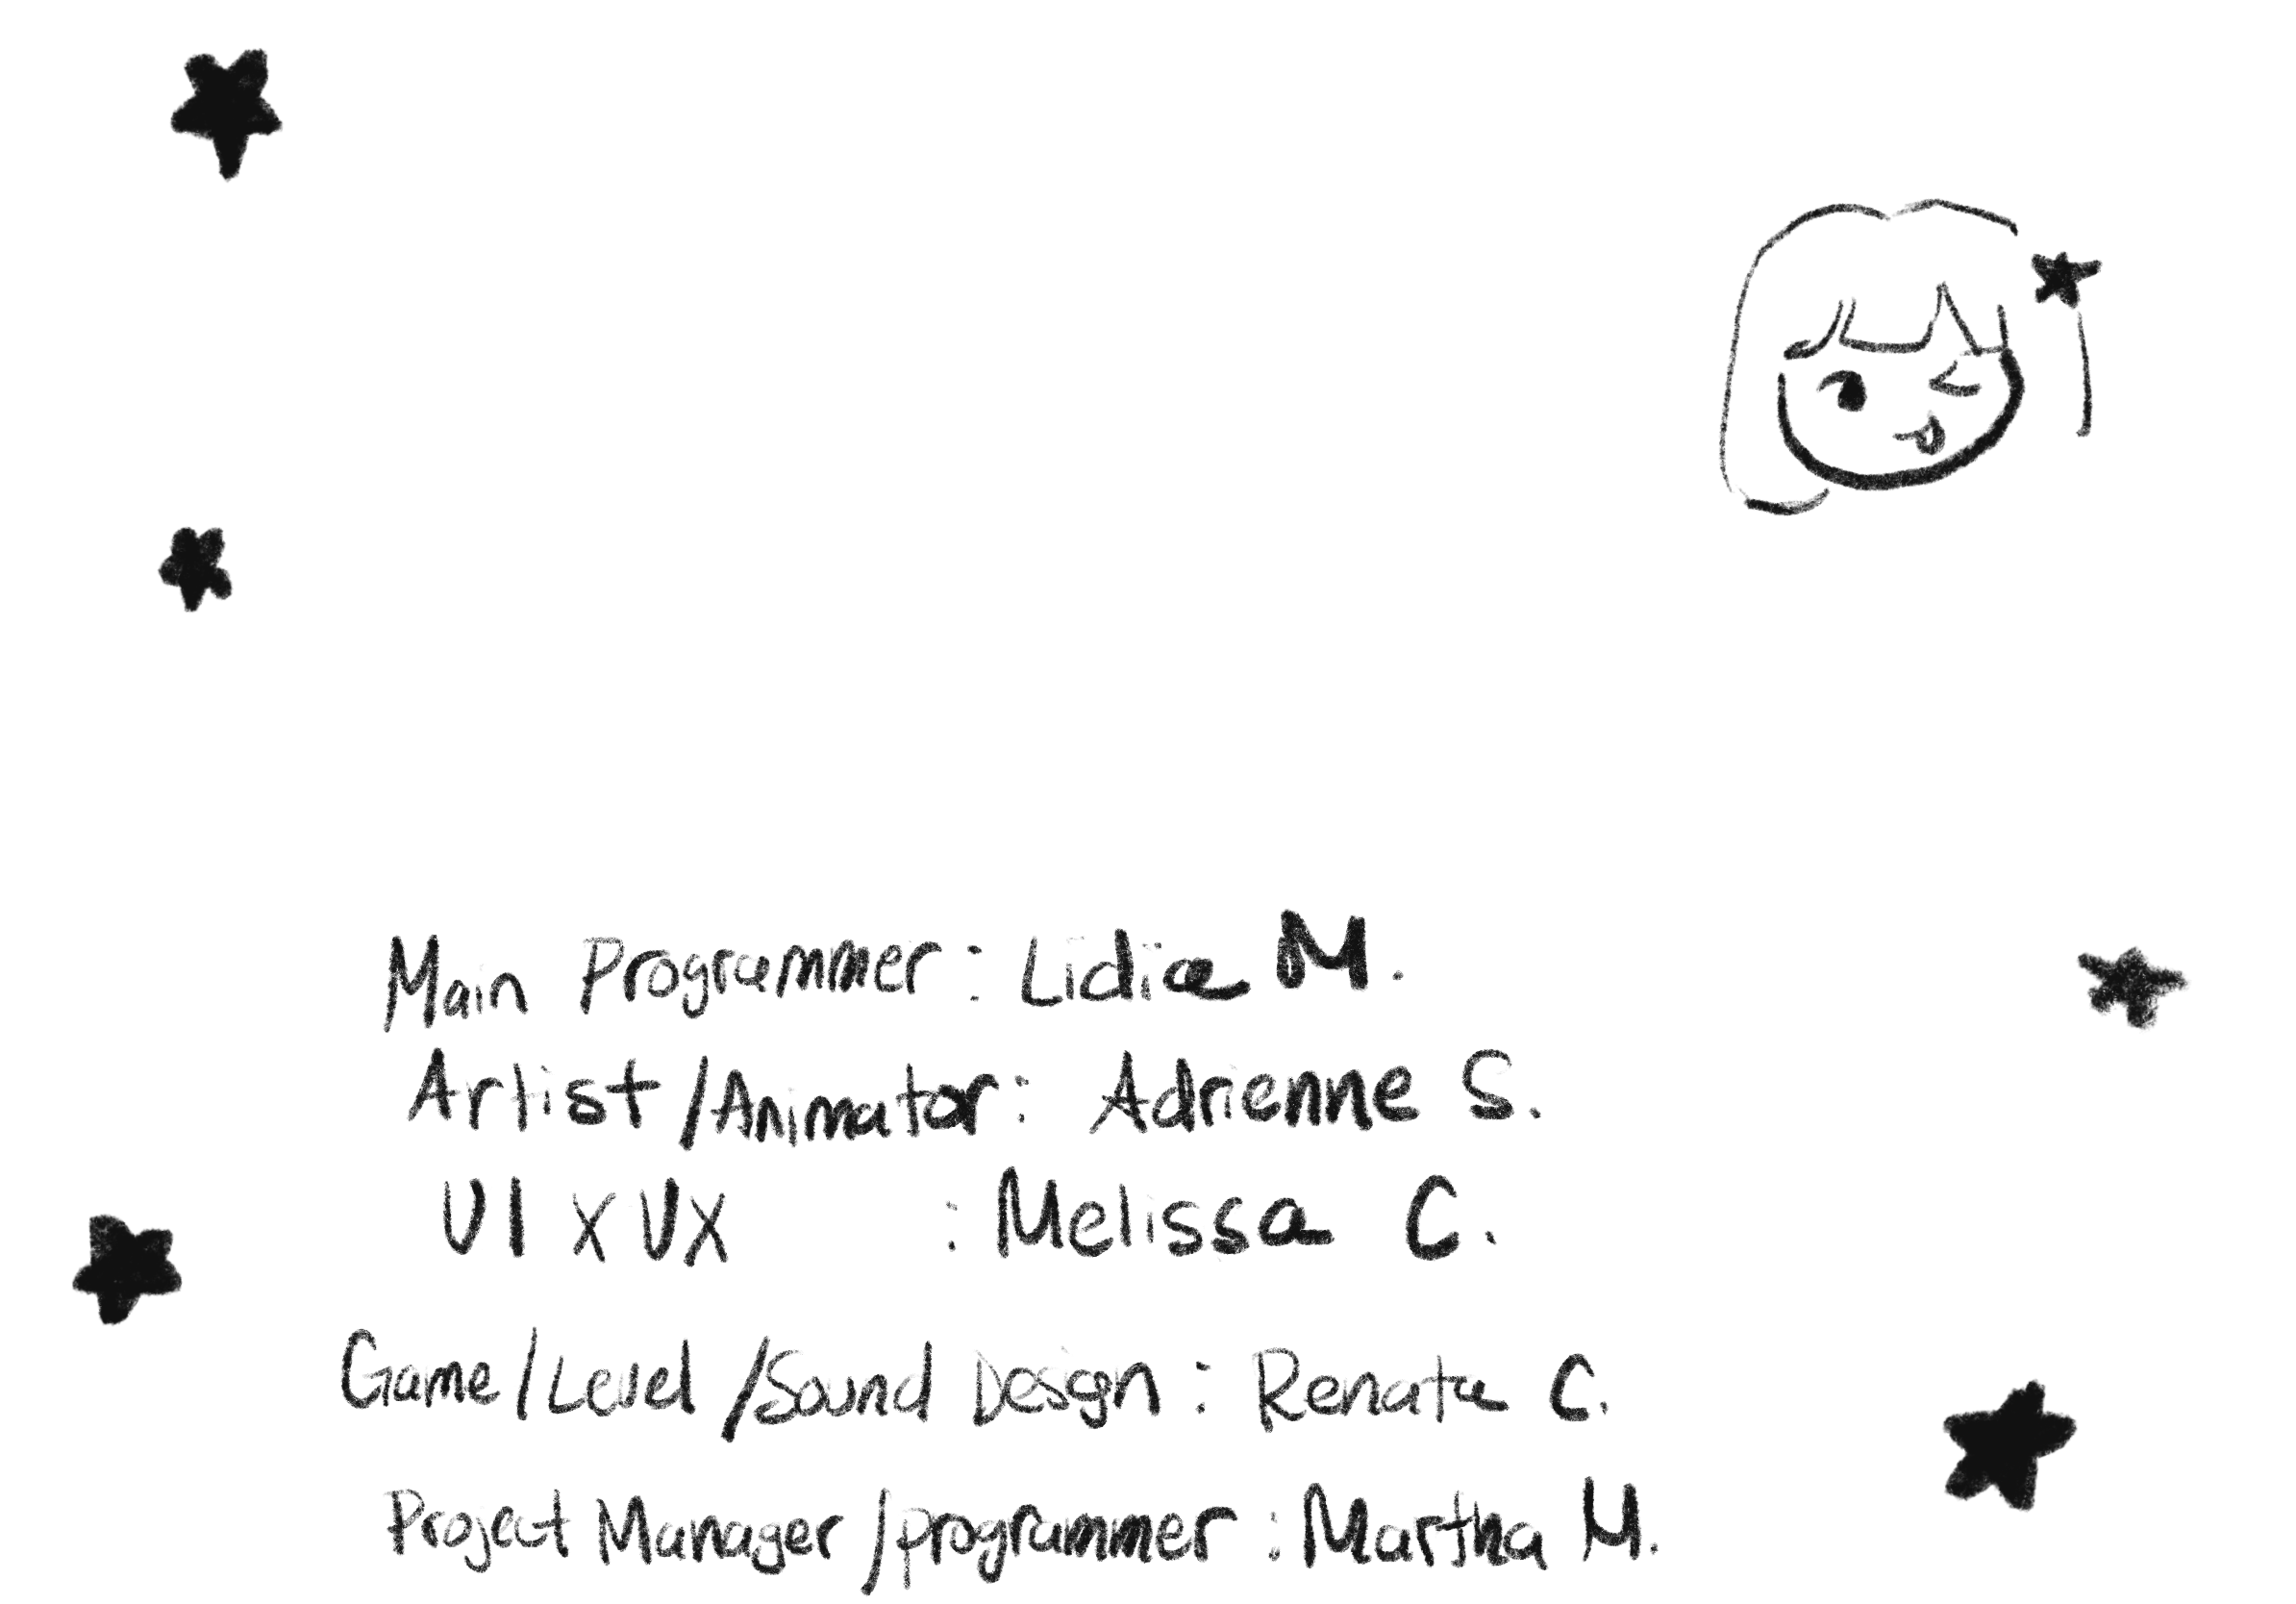 Main Programmer: Lidia M.
Artist/Animator: Adrienne S.
UI x UX : Melissa C.
Game/Level/Sound Design: Renata C.
Project Manager/programmer: Martha M.